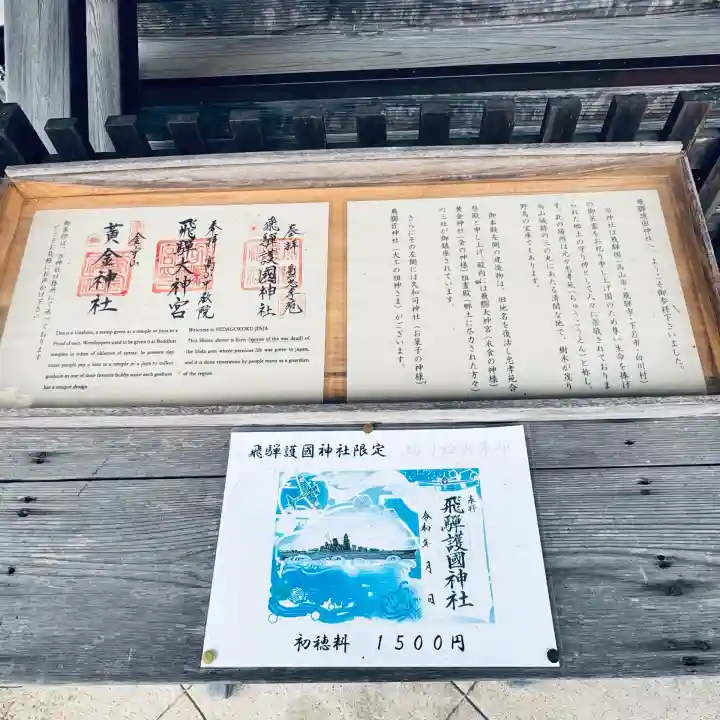 飛騨護国神社へ ようこそ御参拝下さいました。
当神社は飛騨国(高山市・飛騨市・下呂市・白川村)
の御英霊をお祀り申し上げ国のため尊い生命を捧げ
られた郷土の守り神として人々に崇敬されておりま
す。此の場所は元々忠孝苑(ちゅうこうえん)と称し、
高山城跡の三の丸にあたる清閑な地で、樹木が茂り
野鳥の宝庫でもあります。
御本殿左側の建造物は、旧地名を復活し忠孝苑合
祭殿と申し上げ、殿内には飛騨大神宮(衣食の神様)
黄金神社(金の神様)祖霊殿(郷土に尽力された方々)
の三社が御鎮座されています。
さらにその左側には久和司神社(お菓子の神様)
飛騨匠神社(大工の祖神さま)がございます。
奉拝 忠孝苑
飛騨護國神社
奉拝 中教院
飛騨大神宮
金幸山
黄金神社
御朱印は、当神社社務所にて承っております
どうぞお気軽にお声がけ下さい
Welcome to HIDAGOKOKU JINJA
This Shinto shrine is Eirei (spirits of the war dead) of
the Hida area where precious life was given to Japan,
and it is done veneration by people many as a guardian
of the region
This is a Goshuin, a stamp given at a temple or jinja as a
Proof of visit. Worshippers used to be given it as Buddhist
samples in token of oblation of sutras. In present day
some people pay a visit to a temple or a jinja to collect
goshuin as one of their favorite hobby since each goshuin
has a unique design.
飛騨護國神社限定
奉拝
飛騨護國神社
令和 年 月 日
初穂料 1500円